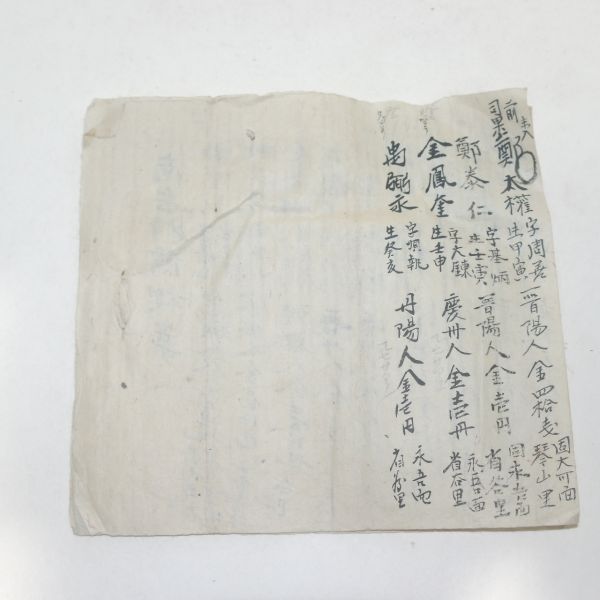 前司果 鄭太權 字周若 生甲寅 晋陽人 金四拾戔 固大可面 琴山里
鄭泰仁 字基炳 生壬寅 晋陽人 金壱円 固永吾面 省谷里
金鳳奎 字大鍊 生壬申 慶州人 金壱円 永吾面 省谷里
禹 永 字 生癸亥 丹陽人 金壱円 永吾面 里